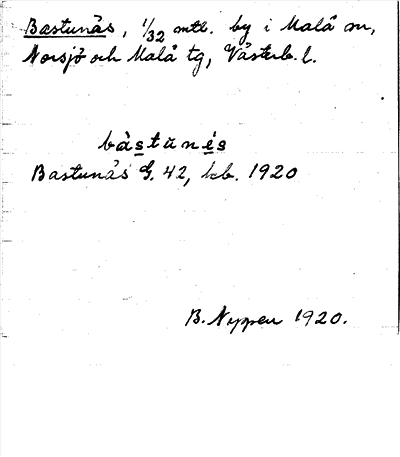 Bastunäs, 1/32 mtl. by i Malå sn,
Norsjö och Malå tg, Västerb. l.
bàstunés
Bastunäs G. 42, kb. 1920
B. Nyppen 1920.